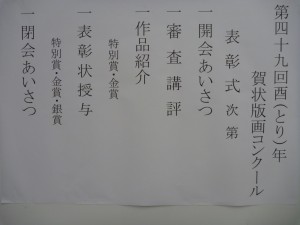 第四十九回酉(とり)年
賀状版画コンクール
表彰式次第
一開会あいさつ
一審査講評
一作品紹介
特別賞・金賞
一表彰状授与
特別賞・金賞・銀賞
一閉会あいさつ